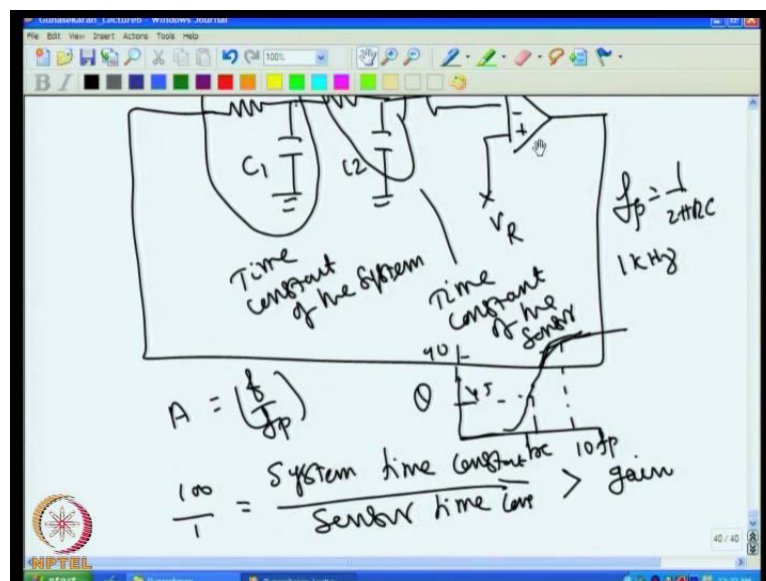 Gunasekaran_Lecture6 - Windows Journal
File Edit View Insert Actions Tools Help
100%
B I
C1
C2
-
+
VR
fp = 1/2πRC
1 KHz
Time constant of the system
Time constant of the sensor
A = (f/fp)
θ
90
45
fc
10fp
100/1 = System time constant / Sensor time cons > gain
40 / 40
NPTEL
start